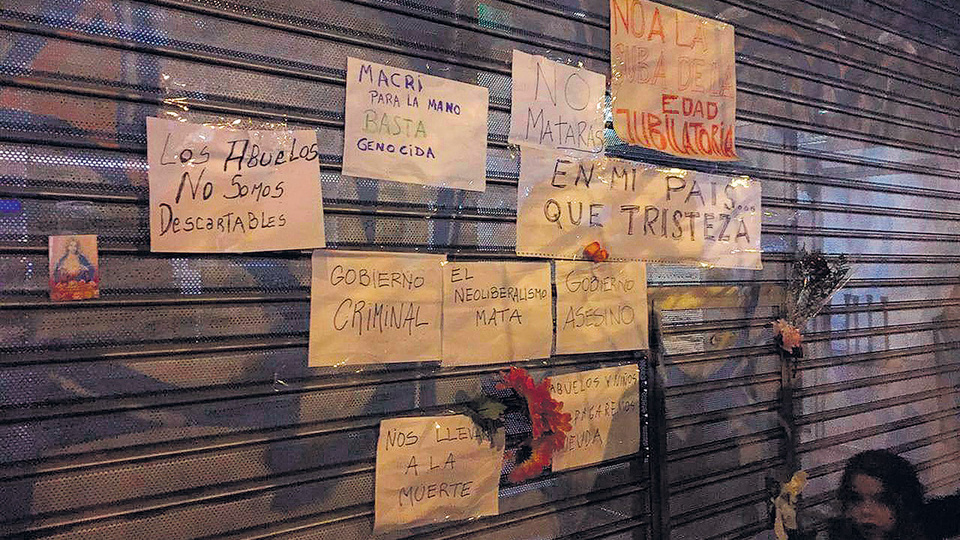 NO A LA
SUBA DE LA
EDAD
JUBILATORIA
MACRI
PARA LA MANO
BASTA
GENOCIDA
NO
MATARAS
LOS ABUELOS
NO SOMOS
DESCARTABLES
EN MI PAIS...
QUE TRISTEZA
GOBIERNO
CRIMINAL
EL
NEOLIBERALISMO
MATA
GOBIERNO
ASESINO
ABUELOS Y NIÑOS
PAGAREMOS
DEUDA
NOS LLEVA
A LA
MUERTE